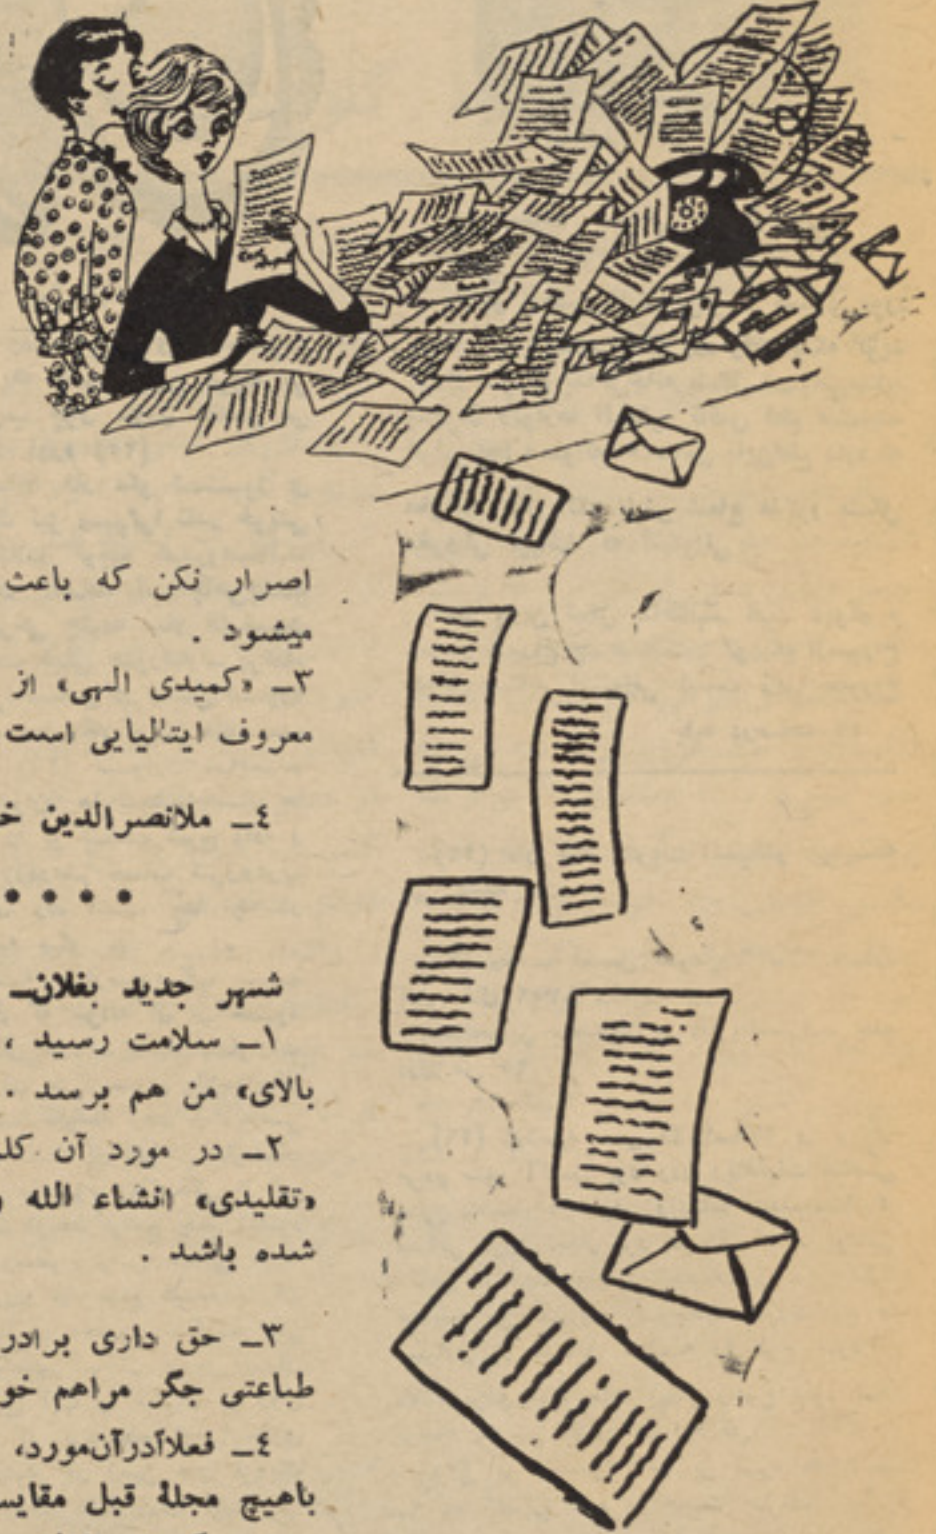 اصرار نکن که باعث
میشود .
۳ـ «کمیدی الهی» از
معروف ایتالیایی است
٤ـ ملانصرالدین
شهر جدید بغلان ـ
۱ـ سلامت رسید ،
بالای» من هم برسد .
۲ـ در مورد آن
«تقلیدی» انشاء الله
شده باشد .
۳ـ حق داری برادر
طباعتی جگر مراهم
٤ـ فعلاًدرآن‌مورد،
باهیچ مجلۀ قبل